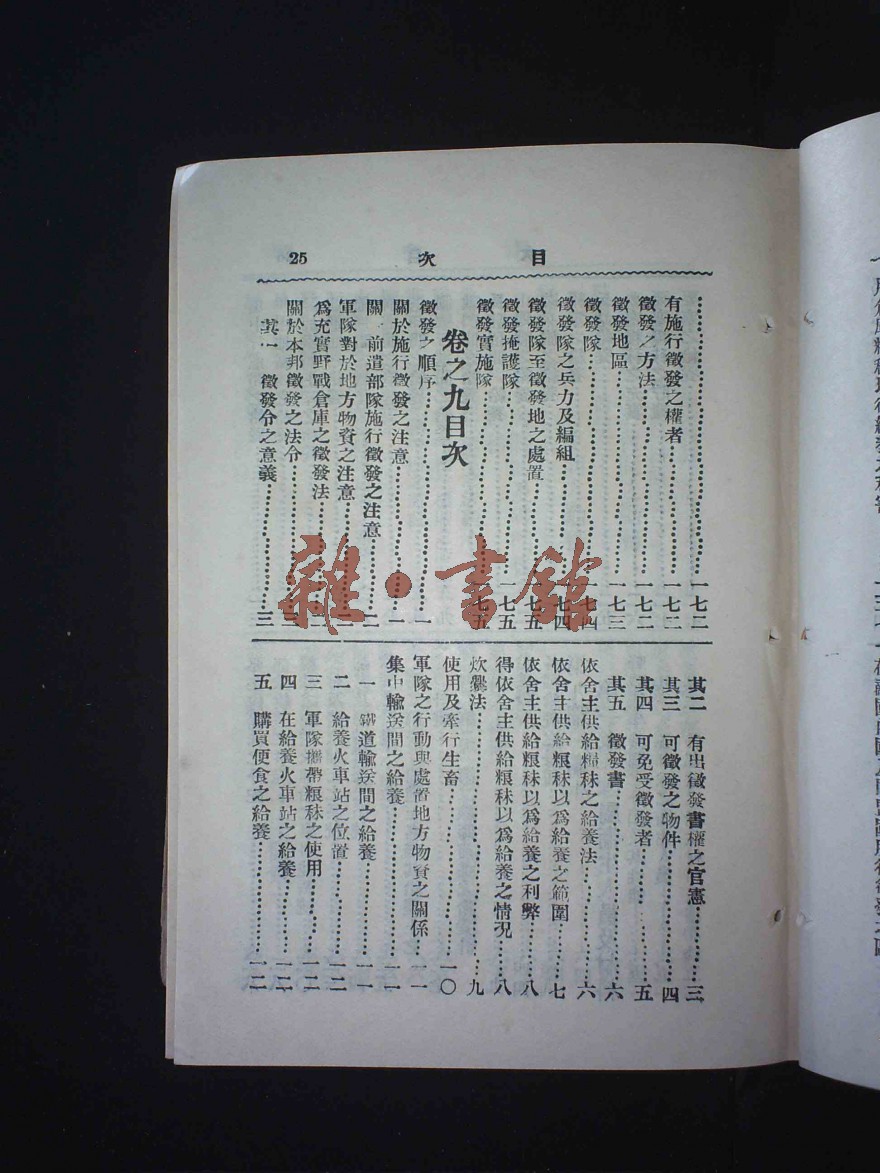 目次 25
……一七二
有施行徵發之權者……一七二
徵發之方法……一七二
徵發地區……一七三
徵發隊……一七四
徵發隊之兵力及編組……一七四
徵發隊至徵發地之處置……一七五
徵發掩護隊……一七五
徵發實施隊……一七五
卷之九目次
徵發之順序……一
關於施行徵發之注意……一
關 前遣部隊施行徵發之注意……二
軍隊對於地方物資之注意……二
爲充實野戰倉庫之徵發法……二
關於本邦徵發之法令……三
其一 徵發令之意義……三
其二 有出徵發書權之官憲……三
其三 可徵發之物件……四
其四 可免受徵發者……五
其五 徵發書……六
依舍主供給糧秣之給養法……六
依舍主供給糧秣以爲給養之範圍……七
依舍主供給糧秣以爲給養之利弊……八
得依舍主供給糧秣以爲給養之情況……八
炊爨法……九
使用及牽行生畜……一〇
軍隊之行動與處置地方物資之關係……一一
集中輸送間之給養……一一
一 鐵道輸送間之給養……一一
二 給養火車站之位置……一二
三 軍隊攜帶糧秣之使用……一二
四 在給養火車站之給養……一二
五 購買便食之給養……一二
雜·書館